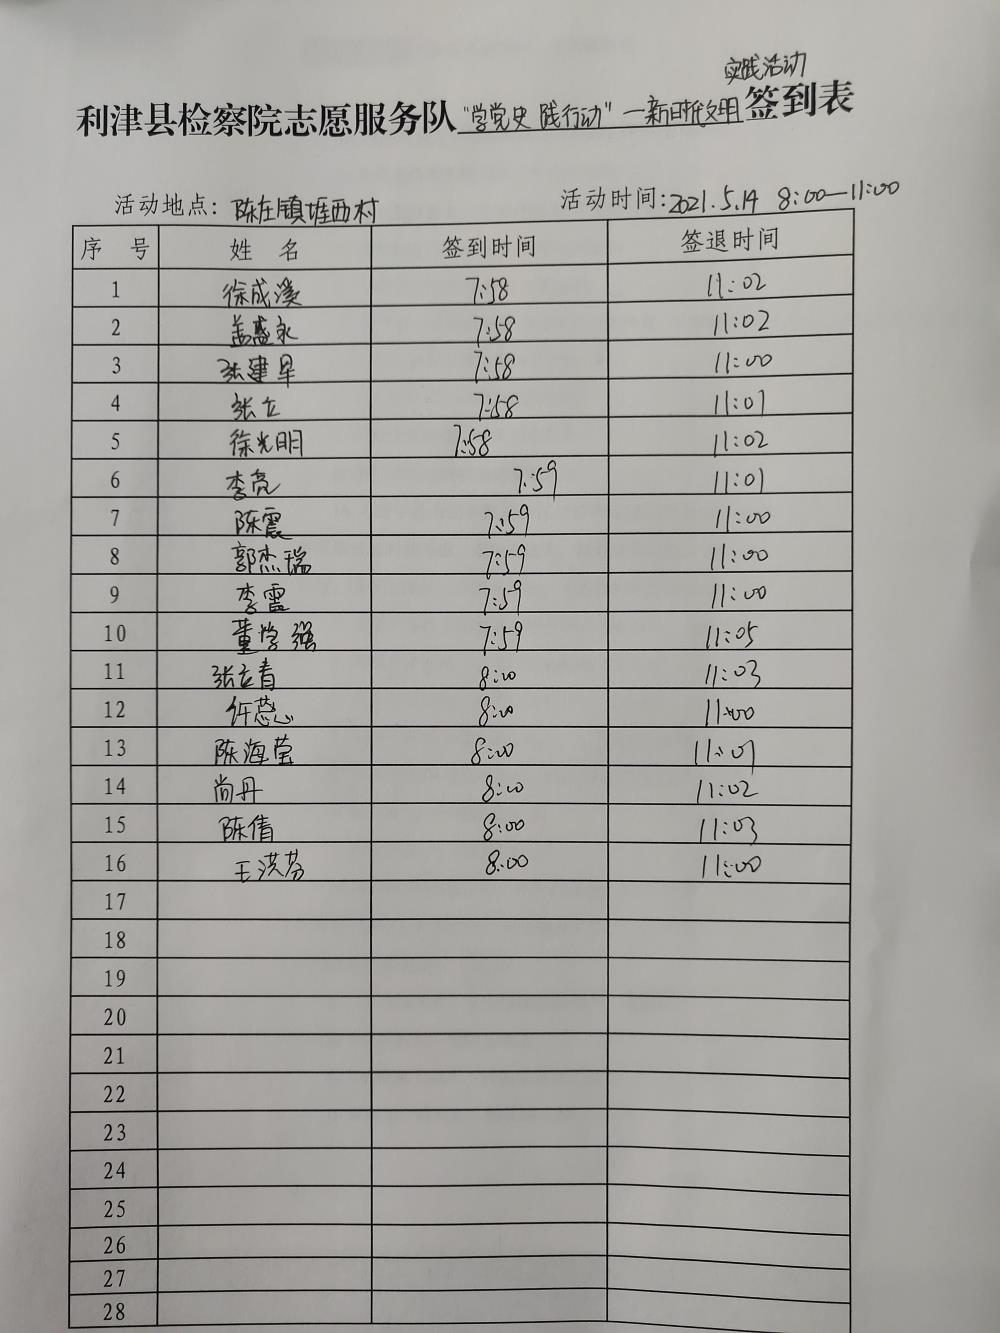 实践活动
利津县检察院志愿服务队“学党史 践行动”—新时代文明签到表
活动地点：陈庄镇堐西村 活动时间：2021.5.14 8:00—11:00
序 号 姓 名 签到时间 签退时间
1 徐成溪 7:58 11:02
2 盖盛永 7:58 11:02
3 张建早 7:58 11:00
4 张立 7:58 11:01
5 徐光明 7:58 11:02
6 李亮 7:59 11:01
7 陈震 7:59 11:00
8 郭杰瑞 7:59 11:00
9 李雷 7:59 11:00
10 董学强 7:59 11:05
11 张立青 8:00 11:03
12 任蕊 8:00 11:00
13 陈海莹 8:00 11:01
14 尚丹 8:00 11:02
15 陈倩 8:00 11:03
16 王洪芬 8:00 11:00
17
18
19
20
21
22
23
24
25
26
27
28